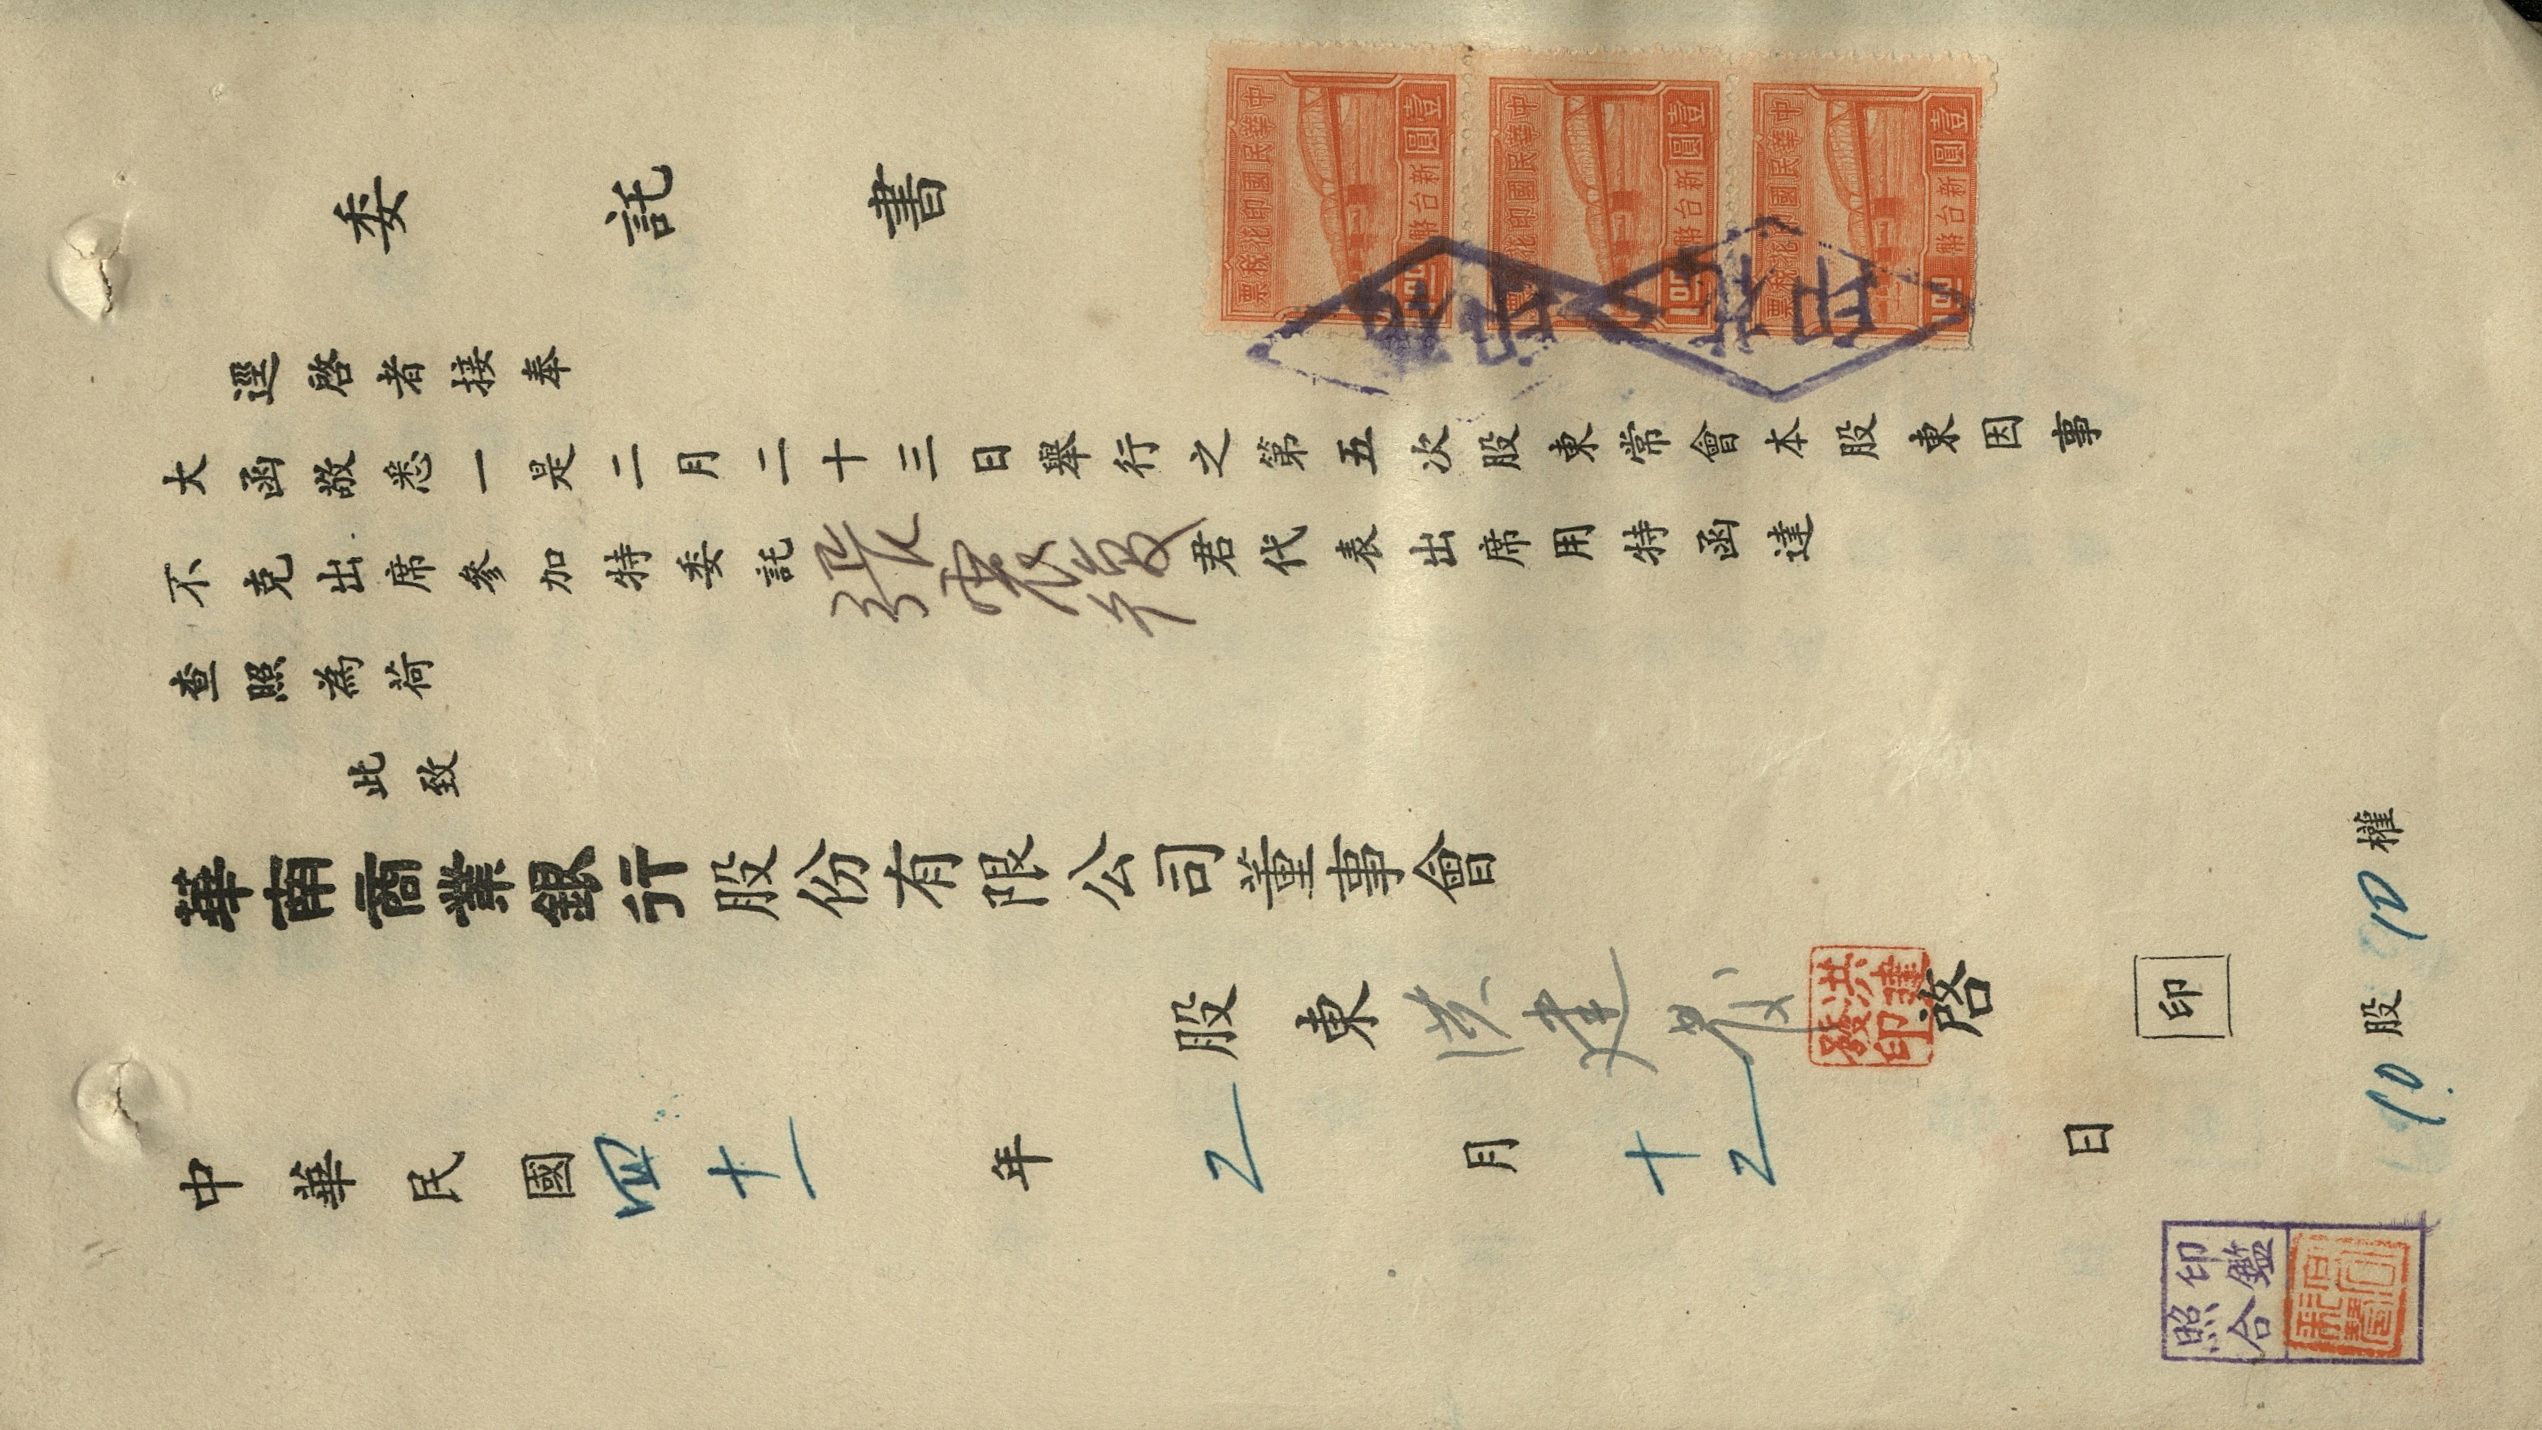 委託書
逕啓者接奉
大函敬悉一是二月二十三日舉行之第五次股東常會本股東因事
不克出席參加特委託張 君代表出席用特函達
查照為荷
此致
華南商業銀行股份有限公司董事會
股東洪建發啓
洪建發印
印
中華民國四十一年2月十2日
10股10權
中華民國印花稅票
壹圓新台幣
100
中華民國印花稅票
壹圓新台幣
100
中華民國印花稅票
壹圓新台幣
100
印花
印花
印鑑
照合